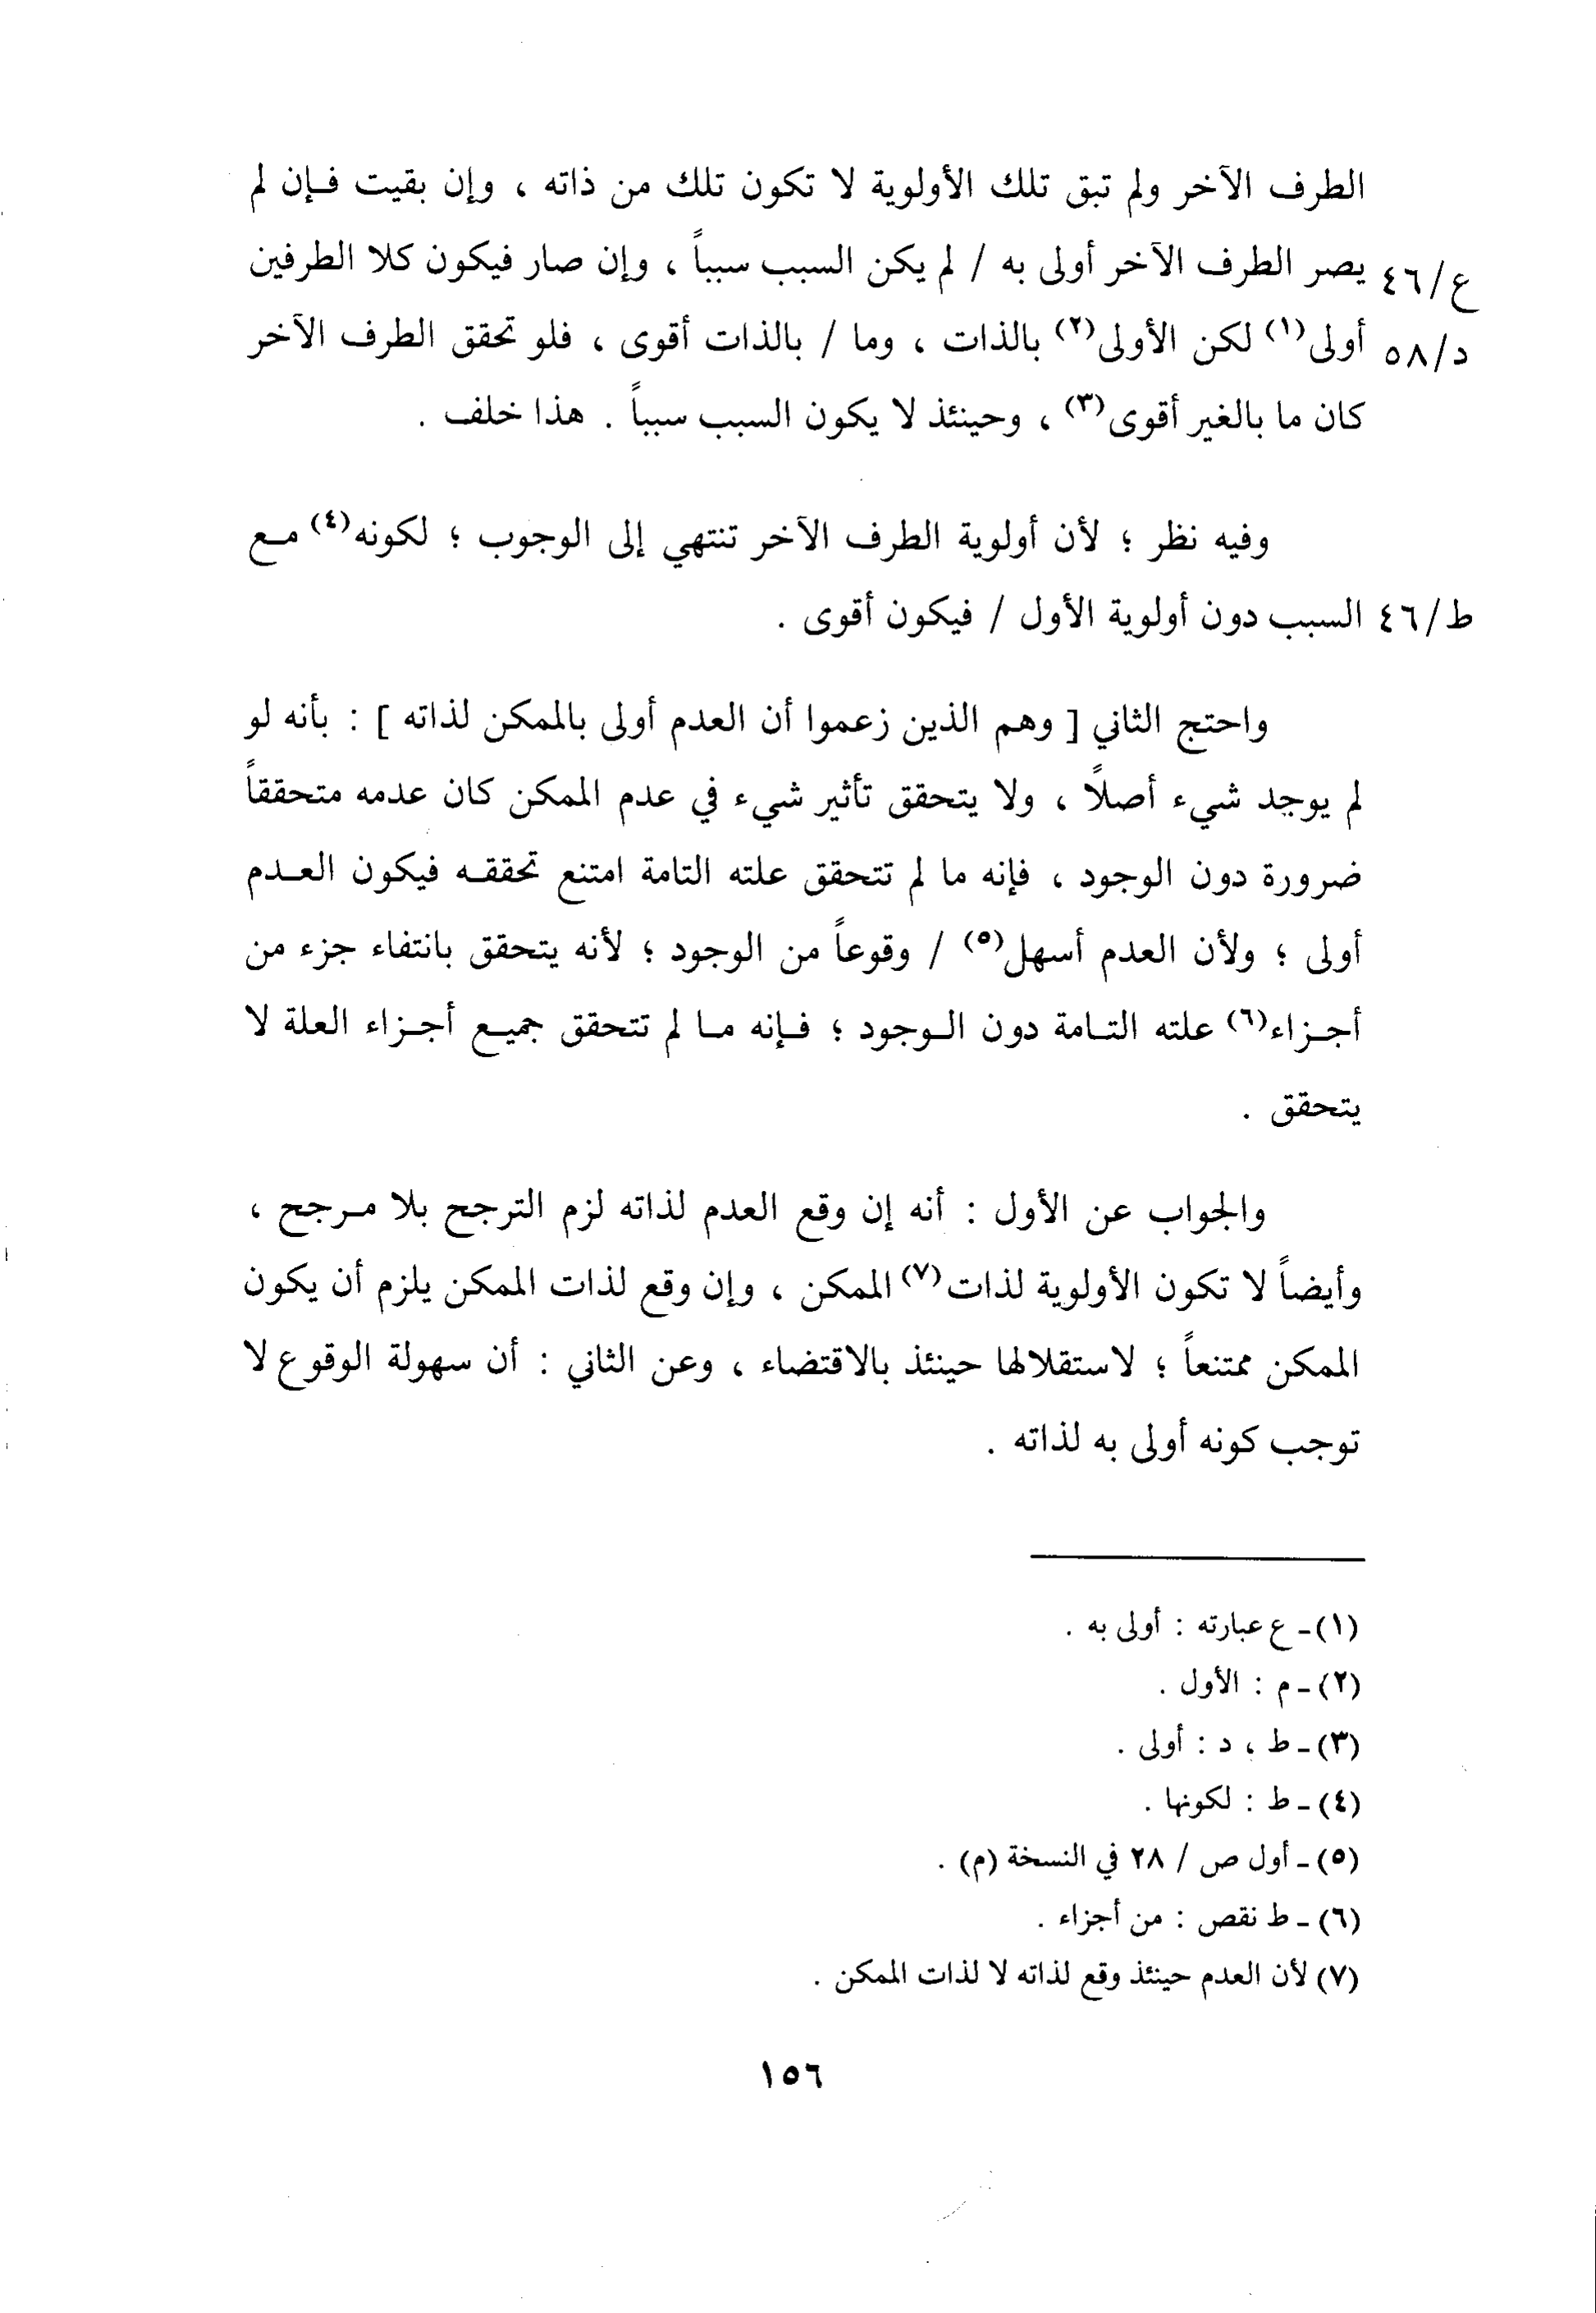 الطرف الآخر ولم تبق تلك الأولوية لا تكون تلك من ذاته ، وإن بقيت فإن لم
ع/٤٦ يصر الطرف الآخر أولى به / لم يكن السبب سبباً ، وإن صار فيكون كلا الطرفين
د/٥٨ أولى(١) لكن الأولى(٢) بالذات ، وما / بالذات أقوى ، فلو تحقق الطرف الآخر
كان ما بالغير أقوى(٣) ، وحينئذ لا يكون السبب سبباً . هذا خلف .
وفيه نظر ؛ لأن أولوية الطرف الآخر تنتهي إلى الوجوب ؛ لكونه(٤) مع
ط/٤٦ السبب دون أولوية الأول / فيكون أقوى .
واحتج الثاني [ وهم الذين زعموا أن العدم أولى بالممكن لذاته ] : بأنه لو
لم يوجد شيء أصلاً ، ولا يتحقق تأثير شيء في عدم الممكن كان عدمه متحققاً
ضرورة دون الوجود ، فإنه ما لم تتحقق علته التامة امتنع تحققه فيكون العدم
أولى ؛ ولأن العدم أسهل(٥) / وقوعاً من الوجود ؛ لأنه يتحقق بانتفاء جزء من
أجزاء(٦) علته التامة دون الوجود ؛ فإنه ما لم تتحقق جميع أجزاء العلة لا
يتحقق .
والجواب عن الأول : أنه إن وقع العدم لذاته لزم الترجح بلا مرجح ،
وأيضاً لا تكون الأولوية لذات(٧) الممكن ، وإن وقع لذات الممكن يلزم أن يكون
الممكن ممتنعاً ؛ لاستقلالها حينئذ بالاقتضاء ، وعن الثاني : أن سهولة الوقوع لا
توجب كونه أولى به لذاته .
(١) - ع عبارته : أولى به .
(٢) - م : الأول .
(٣) - ط ، د : أولى .
(٤) - ط : لكونها .
(٥) - أول ص / ٢٨ في النسخة (م) .
(٦) - ط نقص : من أجزاء .
(٧) لأن العدم حينئذ وقع لذاته لا لذات الممكن .
١٥٦